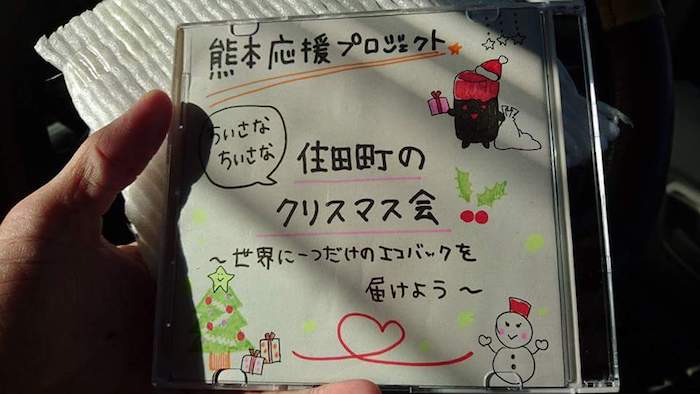 熊本応援プロジェクト
ちいさな
ちいさな
住田町の
クリスマス会
～世界に一つだけのエコバックを
届けよう～